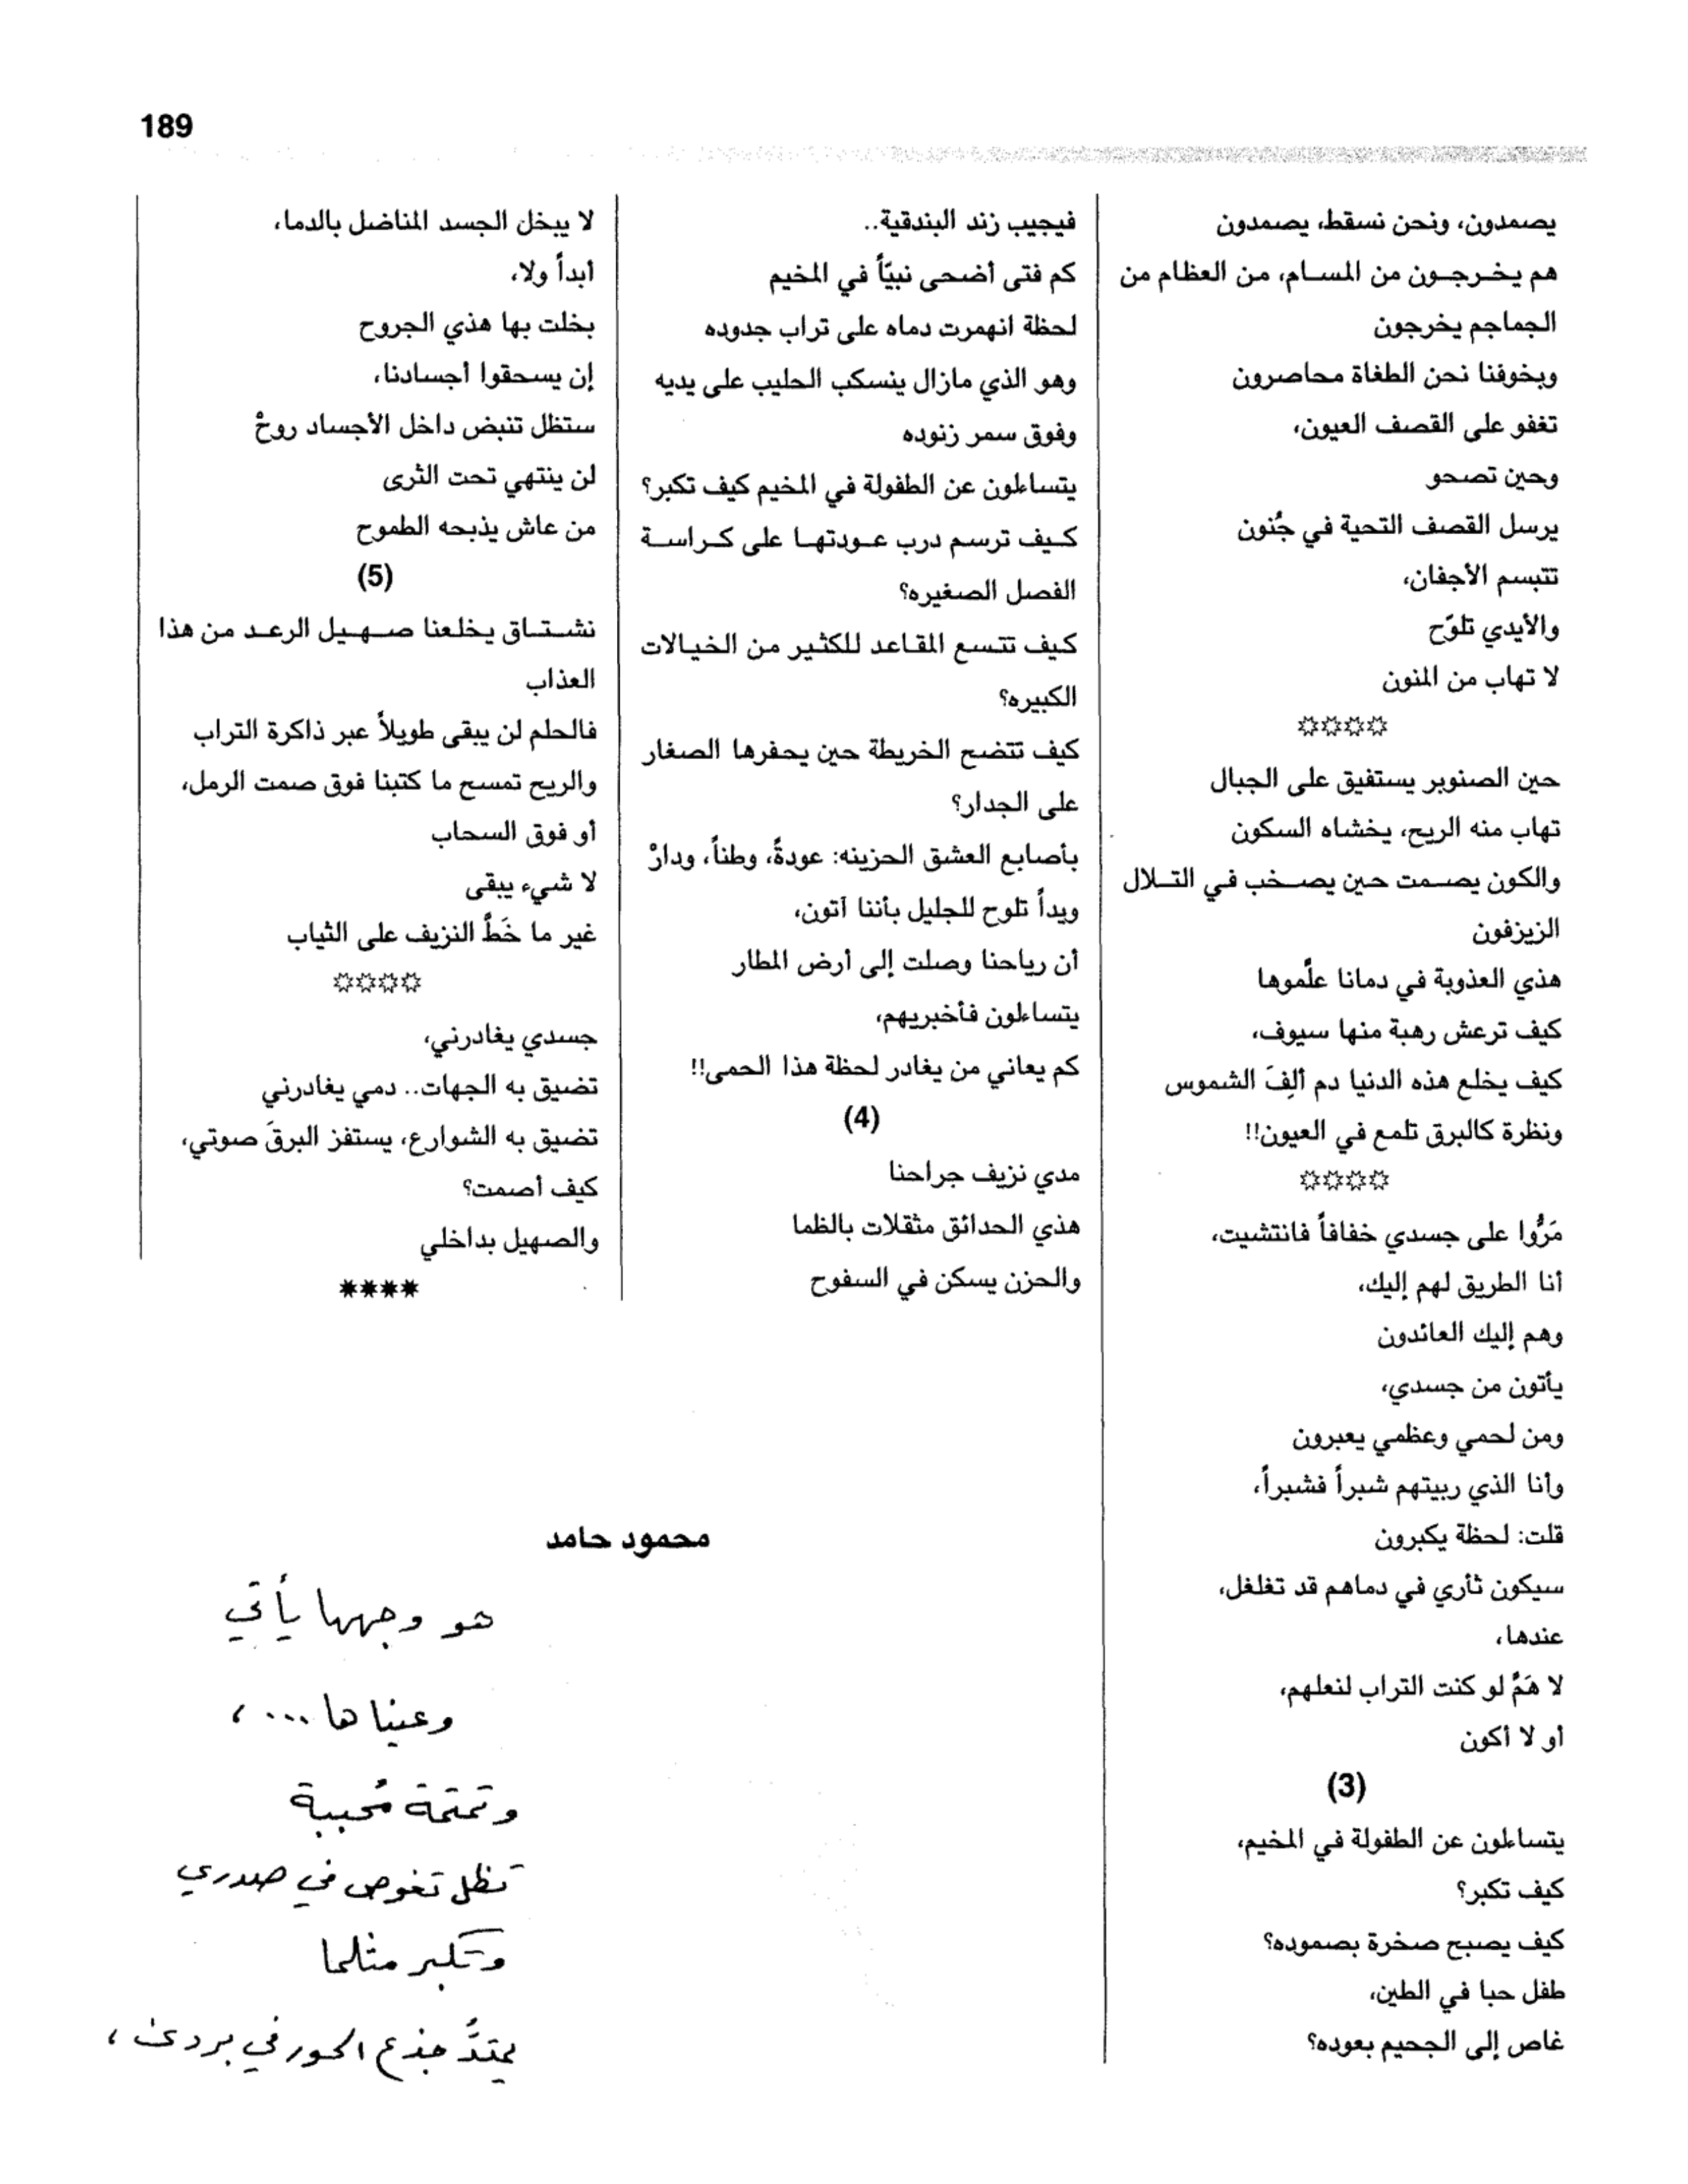 189
يصمدون، ونحن نسقط، يصمدون
هم يخرجون من المسام، من العظام من
الجماجم يخرجون
وبخوفنا نحن الطغاة محاصرون
تغفو على القصف العيون،
وحين تصحو
يرسل القصف التحية في جُنون
تتبسم الأجفان،
والأيدي تلوّح
لا تهاب من المنون
حين الصنوبر يستفيق على الجبال
تهاب منه الريح، يخشاه السكون
والكون يصمت حين يصخب في التلال
الزيزفون
هذي العذوبة في دمانا علَّموها
كيف ترعش رهبة منها سيوف،
كيف يخلع هذه الدنيا دم ألِفَ الشموس
ونظرة كالبرق تلمع في العيون!!
مَرُّوا على جسدي خفافاً فانتشيت،
أنا الطريق لهم إليك،
وهم إليك العائدون
يأتون من جسدي،
ومن لحمي وعظمي يعبرون
وأنا الذي ربيتهم شبراً فشبراً،
قلت: لحظة يكبرون
سيكون ثأري في دماهم قد تغلغل،
عندها،
لا هَمَّ لو كنت التراب لنعلهم،
أو لا أكون
(3)
يتساءلون عن الطفولة في المخيم،
كيف تكبر؟
كيف يصبح صخرة بصموده؟
طفل حبا في الطين،
غاص إلى الجحيم بعوده؟
فيجيب زند البندقية..
كم فتى أضحى نبيّاً في المخيم
لحظة انهمرت دماه على تراب جدوده
وهو الذي مازال ينسكب الحليب على يديه
وفوق سمر زنوده
يتساءلون عن الطفولة في المخيم كيف تكبر؟
كيف ترسم درب عودتها على كراسة
الفصل الصغيره؟
كيف تتسع المقاعد للكثير من الخيالات
الكبيره؟
كيف تتضح الخريطة حين يحفرها الصغار
على الجدار؟
بأصابع العشق الحزينه: عودةً، وطناً، ودارْ
ويداً تلوح للجليل بأننا آتون،
أن رياحنا وصلت إلى أرض المطار
يتساءلون فأخبريهم،
كم يعاني من يغادر لحظة هذا الحمى!!
(4)
مدي نزيف جراحنا
هذي الحدائق مثقلات بالظما
والحزن يسكن في السفوح
لا يبخل الجسد المناضل بالدما،
أبداً ولا،
بخلت بها هذي الجروح
إن يسحقوا أجسادنا،
ستظل تنبض داخل الأجساد روحْ
لن ينتهي تحت الثرى
من عاش يذبحه الطموح
(5)
نشتاق يخلعنا صهيل الرعد من هذا
العذاب
فالحلم لن يبقى طويلاً عبر ذاكرة التراب
والريح تمسح ما كتبنا فوق صمت الرمل،
أو فوق السحاب
لا شيء يبقى
غير ما خَطَّ النزيف على الثياب
جسدي يغادرني،
تضيق به الجهات.. دمي يغادرني
تضيق به الشوارع، يستفز البرقَ صوتي،
كيف أصمت؟
والصهيل بداخلي
****
محمود حامد
هو وجهها يأتي
وعيناها...،
وتمتمة مُحببة
تظل تغوص في صدري
وتكبر مثلما
يمتدُّ جذع الحور في بردى،